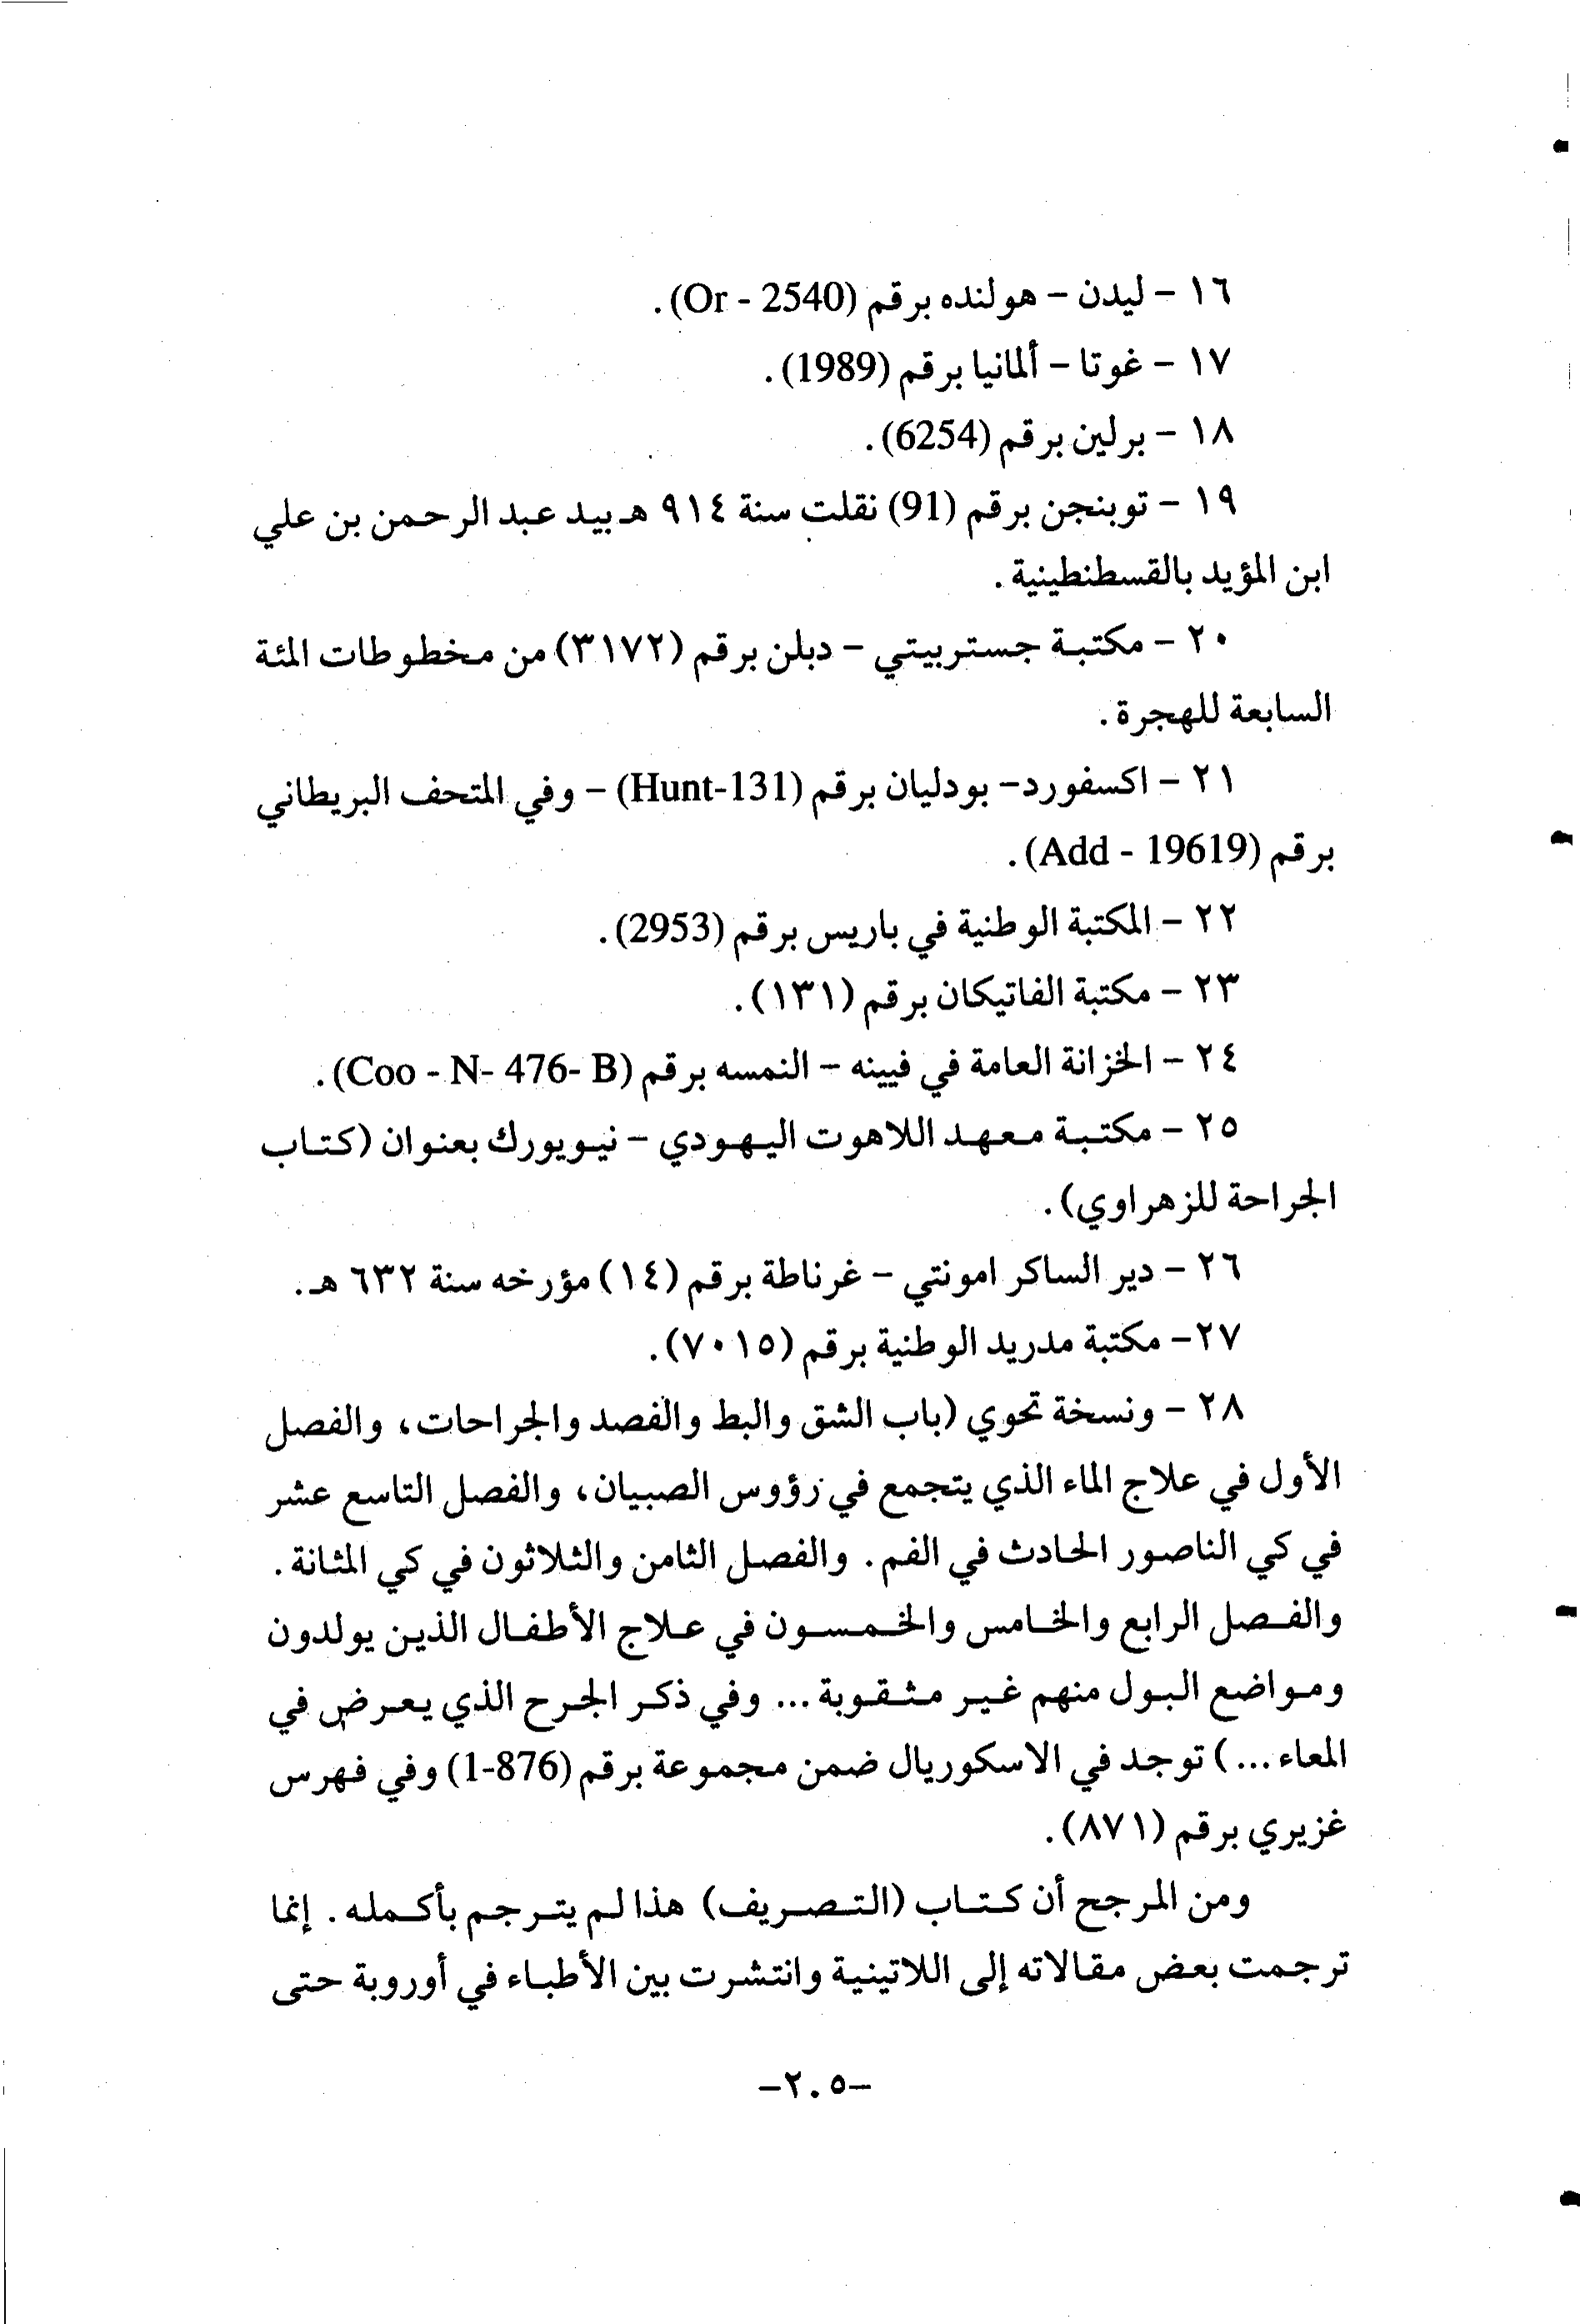 ١٦ - ليدن - هولنده برقم (Or - 2540).
١٧ - غوتا - ألمانيا برقم (1989).
١٨ - برلين برقم (6254).
١٩ - توبنجن برقم (91) نقلت سنة ٩١٤ هـ بيد عبد الرحمن بن علي
ابن المؤيد بالقسطنطينية.
٢٠ - مكتبة جستربيتي - دبلن برقم (٣١٧٢) من مخطوطات المئة
السابعة للهجرة.
٢١ - اكسفورد- بودليان برقم (Hunt-131) - وفي المتحف البريطاني
برقم (Add - 19619).
٢٢ - المكتبة الوطنية في باريس برقم (2953).
٢٣ - مكتبة الفاتيكان برقم (١٣١).
٢٤ - الخزانة العامة في فيينه - النمسه برقم (Coo - N- 476- B).
٢٥ - مكتبة معهد اللاهوت اليهودي - نيويورك بعنوان (كتاب
الجراحة للزهراوي).
٢٦ - دير الساكر امونتي - غرناطة برقم (١٤) مؤرخه سنة ٦٣٢ هـ.
٢٧- مكتبة مدريد الوطنية برقم (٧٠١٥).
٢٨ - ونسخة تحوي (باب الشق والبط والفصد والجراحات، والفصل
الأول في علاج الماء الذي يتجمع في رؤوس الصبيان، والفصل التاسع عشر
في كي الناصور الحادث في الفم. والفصل الثامن والثلاثون في كي المثانة.
والفصل الرابع والخامس والخمسون في علاج الأطفال الذين يولدون
ومواضع البول منهم غير مثقوبة ... وفي ذكر الجرح الذي يعرض في
المعاء ...) توجد في الاسكوريال ضمن مجموعة برقم (876-1) وفي فهرس
غزيري برقم (٨٧١).
ومن المرجح أن كتاب (التصريف) هذا لم يترجم بأكمله. إنما
ترجمت بعض مقالاته إلى اللاتينية وانتشرت بين الأطباء في أوروبة حتى
-٢٠٥-